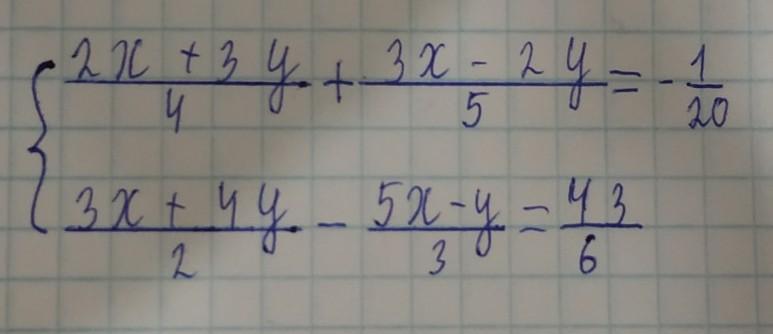 { (2x + 3y)/4 + (3x - 2y)/5 = - 1/20
(3x + 4y)/2 - (5x - y)/3 = 43/6